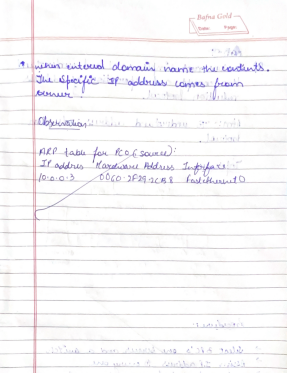 Bafna Gold
Date: Page:
* when entered domain name the contents.
The specific IP address comes from
server.
Observation:
ARP table for PC0 (source):
IP address Hardware Address Interface
10.0.0.3 0060.2F29.2CB8 FastEthernet0